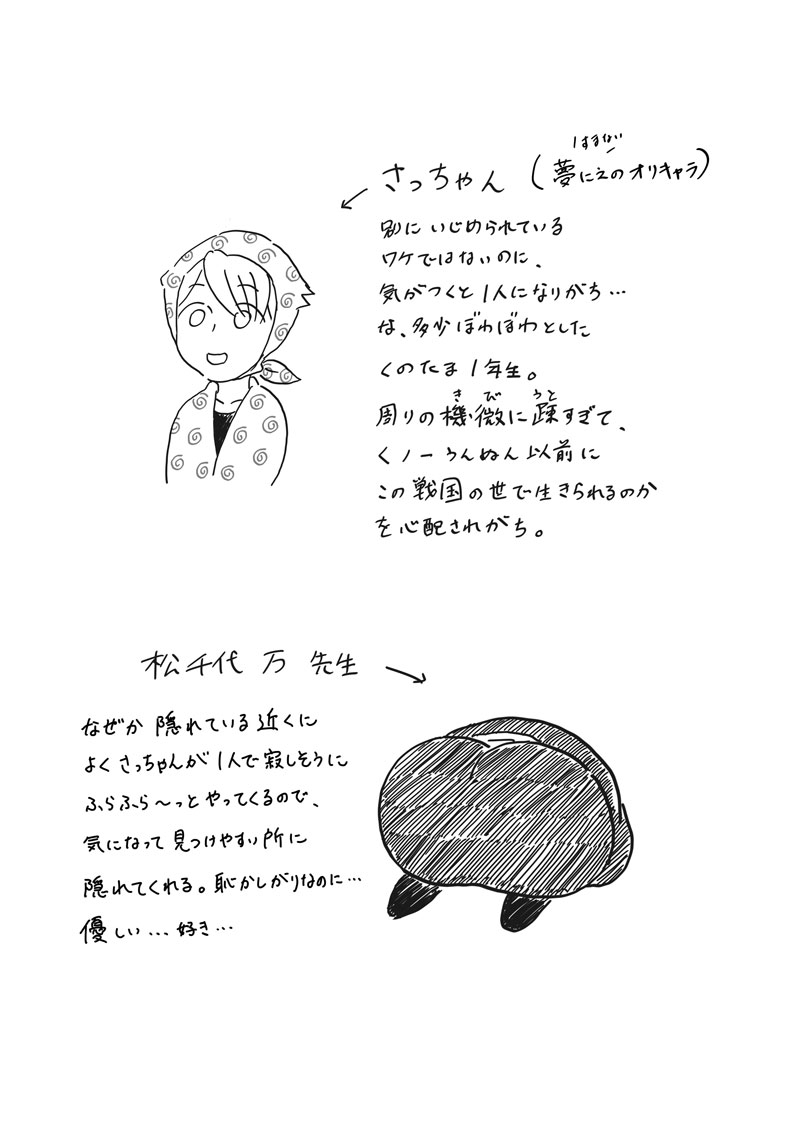 さっちゃん (夢にえのオリキャラ)
別にいじめられている
ワケではないのに、
気がつくと1人になりがち…
な、多少ぽわぽわとした
くのたま1年生。
き び うと
周りの機微に疎すぎて、
くノ一うんぬん以前に
この戦国の世で生きられるのか
を心配されがち。
松千代 万 先生
なぜか 隠れている近くに
よく さっちゃんが1人で寂しそうに
ふらふら〜っとやってくるので、
気になって見つけやすい所に
隠れてくれる。恥かしがりなのに…
優しい…好き…